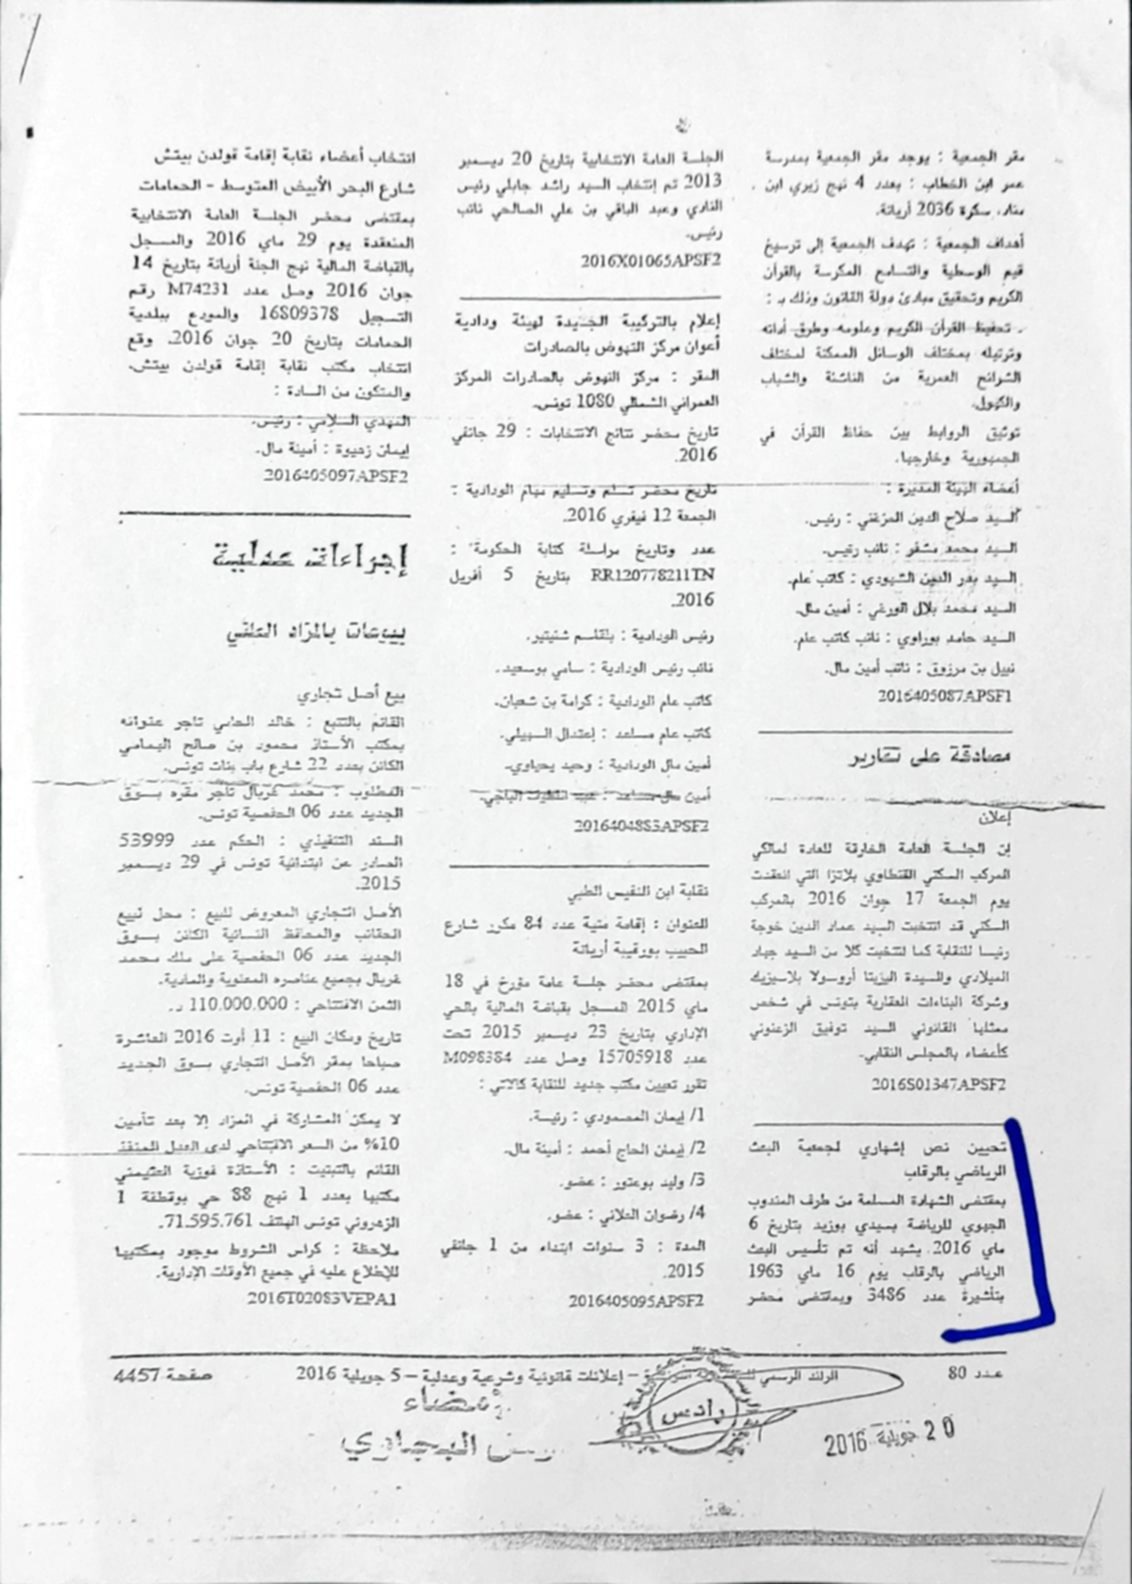 مقر الجمعية : يوجد مقر الجمعية بمدرسة
عمر ابن الخطاب : بعدد 4 نهج زيري ابن
مناد، سكرة 2036 أريانة.
أهداف الجمعية : تهدف الجمعية إلى ترسيخ
قيم الوسطية والتسامح المكرسة بالقرآن
الكريم وتحقيق مبادئ دولة القانون وذلك بـ :
. تحفيظ القرآن الكريم وعلومه وطرق أدائه
وترتيله بمختلف الوسائل الممكنة لمختلف
الشرائح العمرية من الناشئة والشباب
والكهول.
توثيق الروابط بين حفاظ القرآن في
الجمهورية وخارجها.
أعضاء الهيئة المديرة :
السيد صلاح الدين المزغني : رئيس.
السيد محمد مشفر : نائب رئيس.
السيد بدر الدين الشهودي : كاتب عام.
السيد محمد بلال الورغي : أمين مال.
السيد حامد بوراوي : نائب كاتب عام.
نبيل بن مرزوق : نائب أمين مال.
2016405087APSF1
مصادقة على تقارير
إعلان
إن الجلسة العامة الخارقة للعادة لمالكي
المركب السكني القنطاوي بلازا التي انعقدت
يوم الجمعة 17 جوان 2016 بالمركب
السكني قد انتخبت السيد عماد الدين خوجة
رئيسا للنقابة كما انتخبت كلا من السيد جهاد
الميلادي والسيدة اليزيتا أروسولا بلاسيزيك
وشركة البناءات العقارية بتونس في شخص
ممثلها القانوني السيد توفيق الزعنوني
كأعضاء بالمجلس النقابي.
2016S01347APSF2
تحيين نص إشهاري لجمعية البعث
الرياضي بالرقاب
بمقتضى الشهادة المسلمة من طرف المندوب
الجهوي للرياضة بسيدي بوزيد بتاريخ 6
ماي 2016 يشهد أنه تم تأسيس البعث
الرياضي بالرقاب يوم 16 ماي 1963
بتأشيرة عدد 3486 وبمقتضى محضر
الجلسة العامة الانتخابية بتاريخ 20 ديسمبر
2013 تم إنتخاب السيد راشد جابلي رئيس
النادي وعبد الباقي بن علي الصالحي نائب
رئيس.
2016X01065APSF2
إعلام بالتركيبة الجديدة لهيئة ودادية
أعوان مركز النهوض بالصادرات
المقر : مركز النهوض بالصادرات المركز
العمراني الشمالي 1080 تونس.
تاريخ محضر نتائج الانتخابات : 29 جانفي
2016.
تاريخ محضر تسلم وتسليم مهام الودادية :
الجمعة 12 فيفري 2016.
عدد وتاريخ مراسلة كتابة الحكومة :
RR120778211TN بتاريخ 5 أفريل
2016.
رئيس الودادية : بلقاسم شنيتير.
نائب رئيس الودادية : سامي بوسعيد.
كاتب عام الودادية : كرامة بن شعبان.
كاتب عام مساعد : إعتدال السبيلي.
أمين مال الودادية : وحيد يحياوي.
أمين مال مساعد : عبد اللطيف الباجي.
2016404883APSF2
نقابة ابن النفيس الطبي
العنوان : إقامة منية عدد 84 مكرر شارع
الحبيب بورقيبة أريانة
بمقتضى محضر جلسة عامة مؤرخ في 18
ماي 2015 المسجل بقباضة المالية بالحي
الإداري بتاريخ 23 ديسمبر 2015 تحت
عدد 15705918 وصل عدد M098384
تقرر تعيين مكتب جديد للنقابة كالآتي :
1/ إيمان المصمودي : رئيسة.
2/ إيمان الحاج أحمد : أمينة مال.
3/ وليد بوعتور : عضو.
4/ رضوان التلاني : عضو.
المدة : 3 سنوات ابتداء من 1 جانفي
2015.
2016405095APSF2
انتخاب أعضاء نقابة إقامة قولدن بيتش
شارع البحر الأبيض المتوسط - الحمامات
بمقتضى محضر الجلسة العامة الانتخابية
المنعقدة يوم 29 ماي 2016 والمسجل
بالقباضة المالية نهج الجنة أريانة بتاريخ 14
جوان 2016 وصل عدد M74231 رقم
التسجيل 16809378 والمودع ببلدية
الحمامات بتاريخ 20 جوان 2016. وقع
انتخاب مكتب نقابة إقامة قولدن بيتش.
والمتكون من السادة :
المهدي السلامي : رئيس.
إيمان زهيوة : أمينة مال.
2016405097APSF2
إجراءات عدلية
بيوعات بالمزاد العلني
بيع أصل تجاري
القائم بالتتبع : خالد الحامي تاجر عنوانه
بمكتب الأستاذ محمود بن صالح اليمامي
الكائن بعدد 22 شارع باب بنات تونس.
المطلوب : محمد غربال تاجر مقره بسوق
الجديد عدد 06 الحفصية تونس.
السند التنفيذي : الحكم عدد 53999
الصادر عن ابتدائية تونس في 29 ديسمبر
2015.
الأصل التجاري المعروض للبيع : محل لبيع
الحقائب والمحافظ النسائية الكائن بسوق
الجديد عدد 06 الحفصية على ملك محمد
غربال بجميع عناصره المعنوية والمادية.
الثمن الافتتاحي : 110.000.000 د.
تاريخ ومكان البيع : 11 أوت 2016 العاشرة
صباحا بمقر الأصل التجاري بسوق الجديد
عدد 06 الحفصية تونس.
لا يمكن المشاركة في المزاد إلا بعد تأمين
10% من السعر الافتتاحي لدى العدل المنفذ
القائم بالتبتيت : الأستاذة فوزية العثيمني
مكتبها بعدد 1 نهج 88 حي بوقطفة 1
الزهروني تونس الهاتف 71.595.761.
ملاحظة : كراس الشروط موجود بمكتبها
للإطلاع عليه في جميع الأوقات الإدارية.
2016T02083VEPA1
عدد 80
الرائد الرسمي للجمهورية التونسية – إعلانات قانونية وشرعية وعدلية – 5 جويلية 2016
صفحة 4457
إمضاء
رادس
20 جويلية 2016